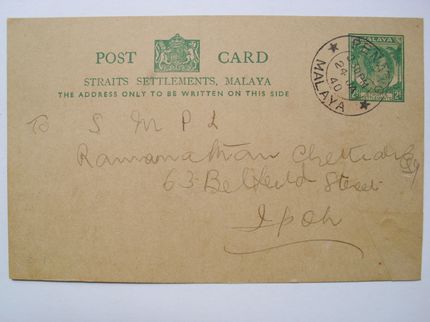 POST CARD
STRAITS SETTLEMENTS, MALAYA
THE ADDRESS ONLY TO BE WRITTEN ON THIS SIDE
MALAYA
MALAYA
24 JA
40
To S M P L
Ramanathan Chettiar
63 Belfield Street
Ipoh